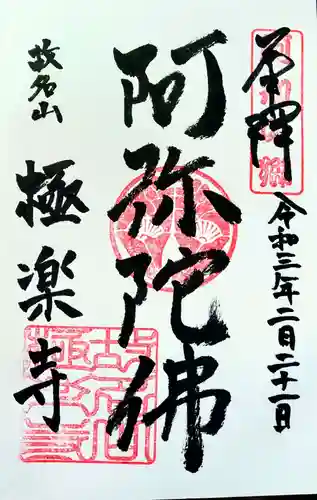 奉拝
令和三年二月二十一日
阿弥陀佛
故名山
極楽寺